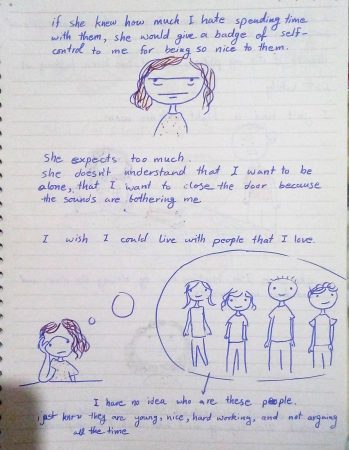 if she knew how much I hate spending time
with them, she would give a badge of self-
control to me for being so nice to them.
She expects too much.
she doesn't understand that I want to be
alone, that I want to close the door because
the sounds are bothering me
I wish I could live with people that I love.
I have no idea who are these people.
i just know they are young, nice, hard working, and not arguing
all the time